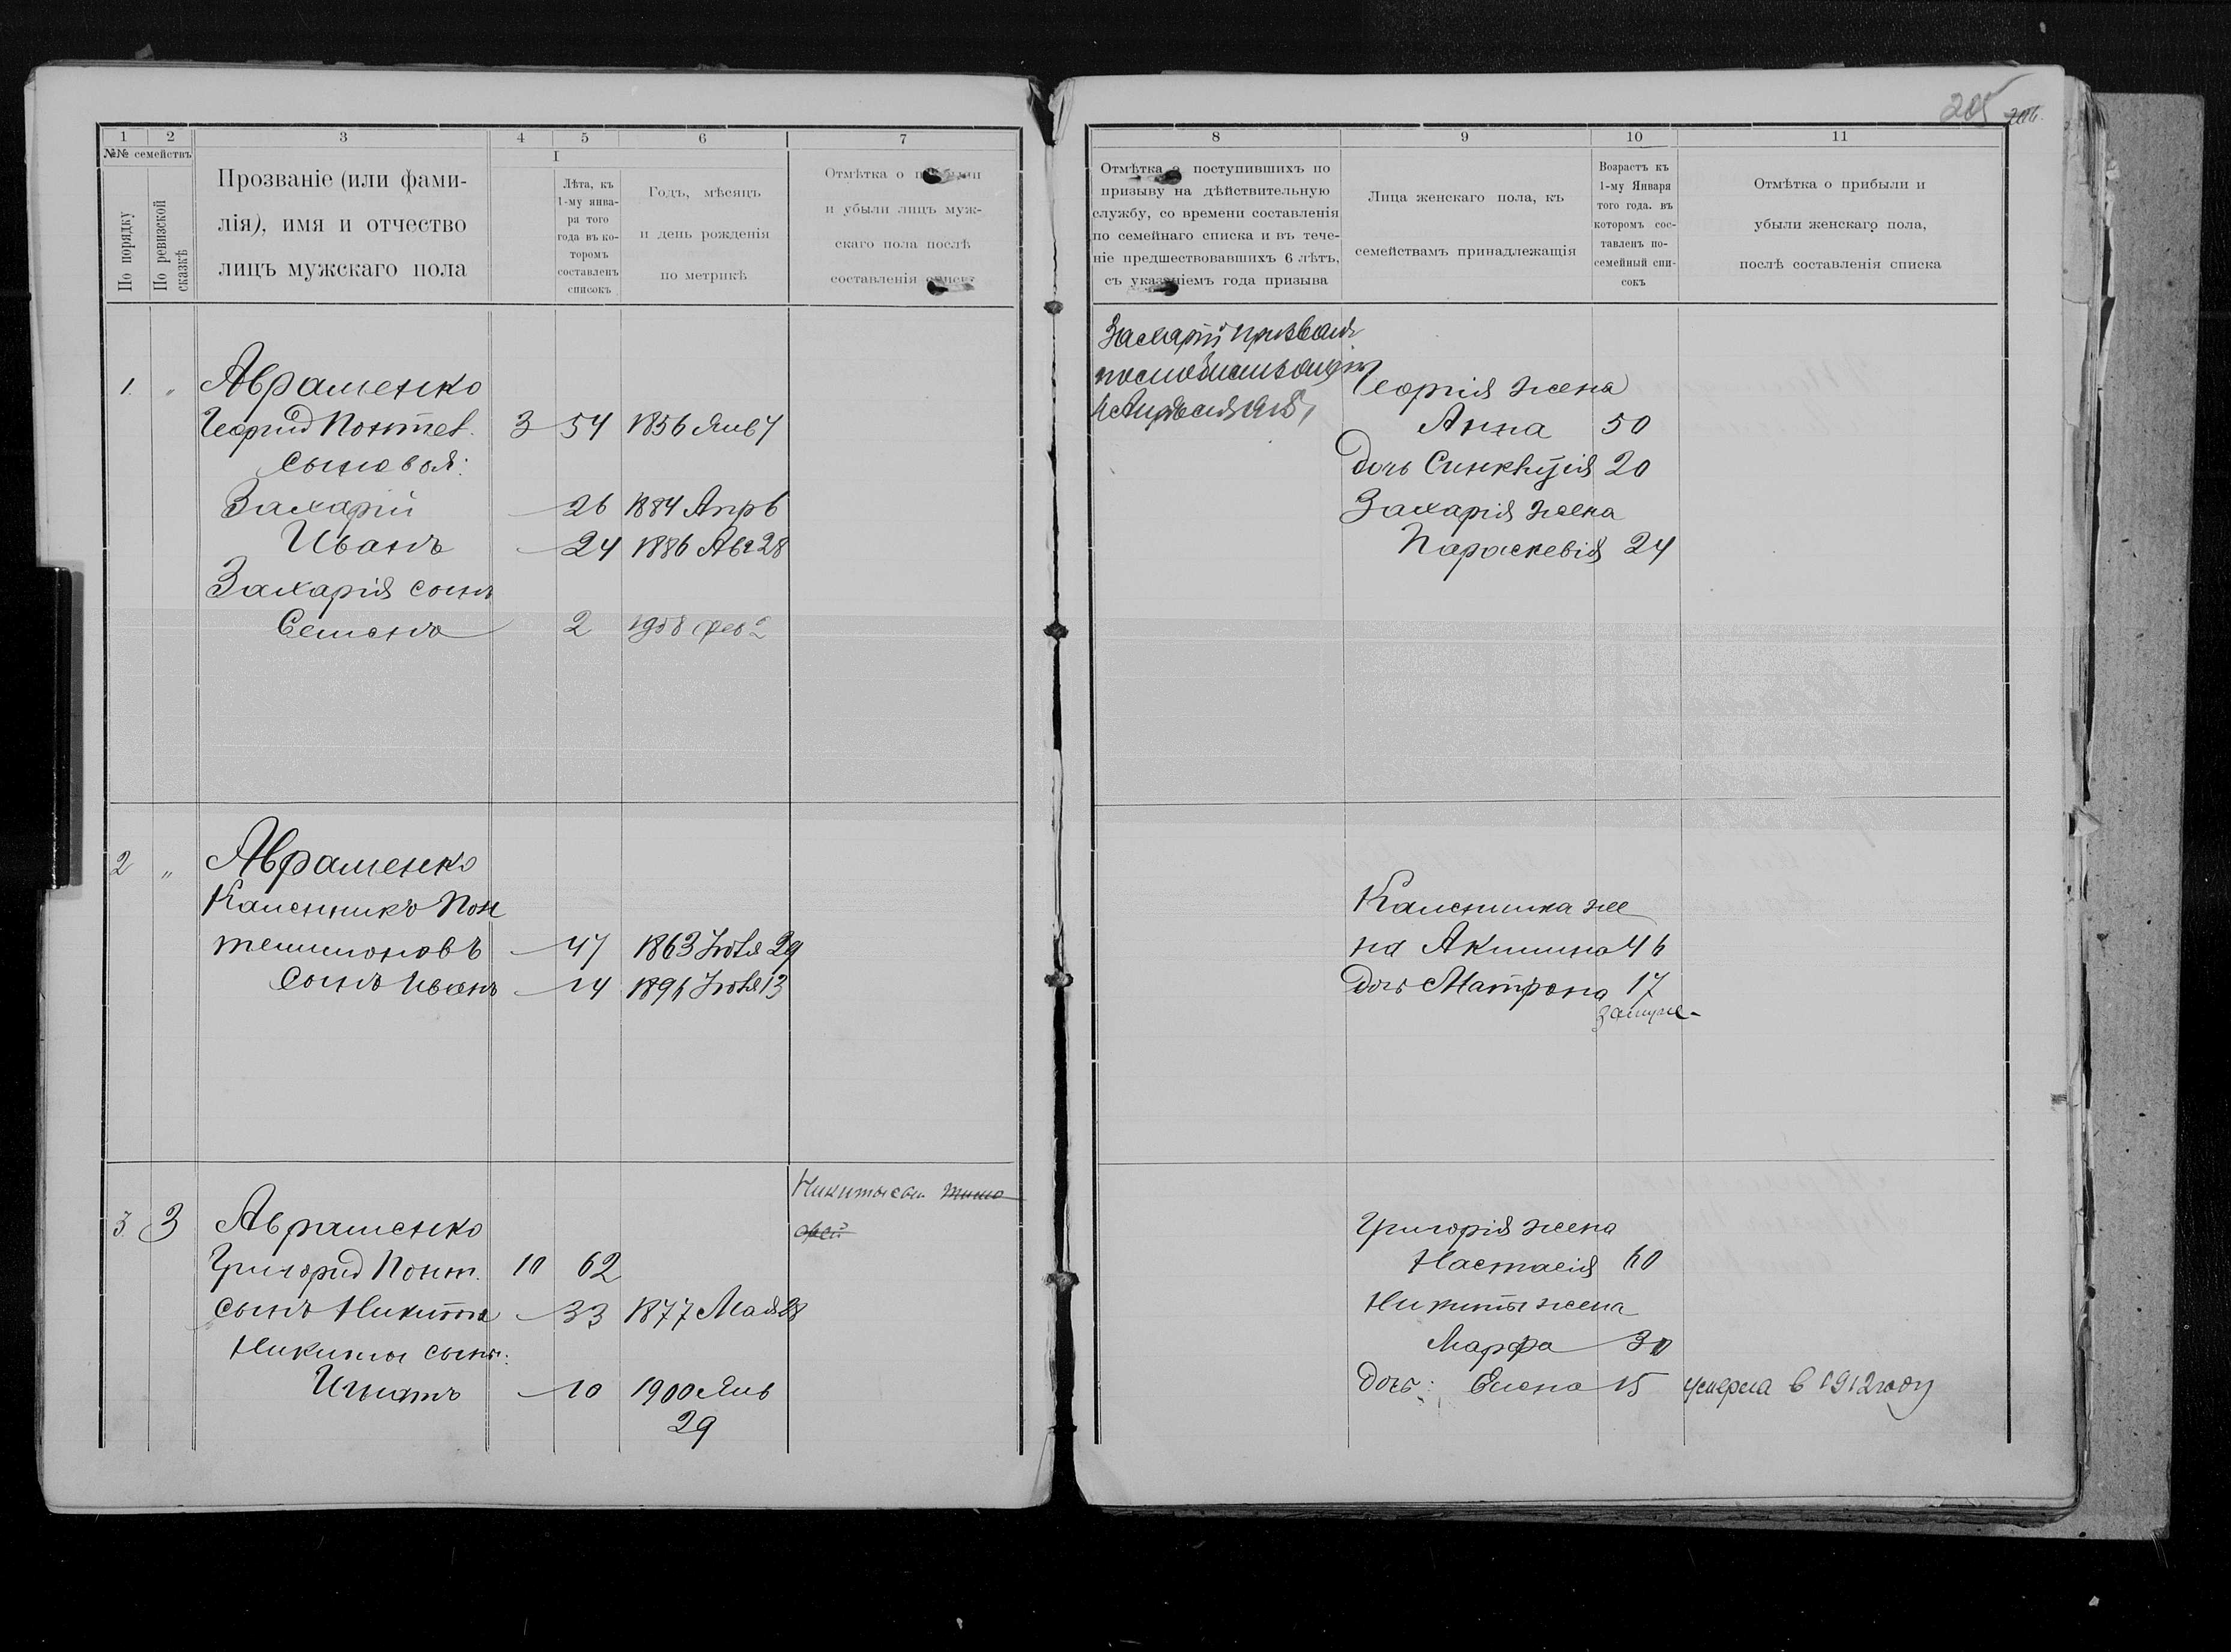 205
1 2 3 4 5 6 7
№№ семействъ
По порядку
По ревизской сказкѣ
Прозваніе (или фами-
лія), имя и отчество
лицъ мужскаго пола
I
Лѣта, къ
1-му янва-
ря того
года въ ко-
торомъ
составленъ
списокъ
Годъ, мѣсяцъ
и день рожденія
по метрикѣ
Отмѣтка о
и убыли лицъ муж-
скаго пола послѣ
составленія
1. " Авраменко
Георгій Понтел. 3 54 1856 Янв 4
сыновья:
Захарій — 26 1884 Апр 6
Иванъ — 24 1886 Авг 28
Захарія сынъ
Семенъ 2 1908 фев 2
2 " Авраменко
Каленникъ Пон
телимоновъ — 47 1863 Іюля 29
сынъ Иванъ — 14 1896 Іюля 13
Никиты сын Тимо
фей
3. 3 Авраменко
Григорій Понт. 10 62
сынъ Никита — 33 1877 Мая 28
Никиты сынъ:
Игнатъ — 10 1900 Янв
29
8 9 10 11
Отмѣтка о поступившихъ по
призыву на дѣйствительную
службу, со времени составленія
по семейнаго списка и въ тече-
ніе предшествовавшихъ 6 лѣтъ,
съ указаніемъ года призыва
Лица женскаго пола, къ
семействамъ принадлежащія
Возрастъ къ
1-му Января
того года. въ
которомъ сос-
тавленъ по-
семейный спи-
сокъ
Отмѣтка о прибыли и
убыли женскаго пола,
послѣ составленія списка
Захарій призван
по мобилизации
Георгія жена
Анна 50
дочь Синклитія 20
Захарія жена
Параскевія 24
Каленика же
на Акилина 46
дочь Матрона 17
замуже-
Григорія жена
Настасія 60
Никиты жена
Марфа 30
дочь: Елена 15 умерла в 1912 году